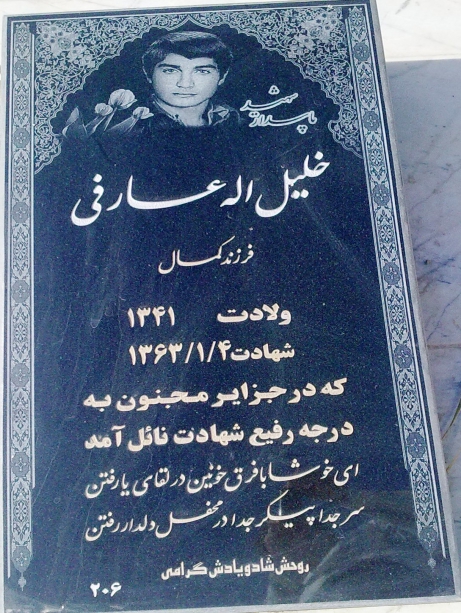 شهید
پاسدار
خلیل اله عارفی
فرزند کمال
ولادت ۱۳۴۱
شهادت ۱۳۶۳/۱/۴
که در جزایر مجنون به
درجه رفیع شهادت نائل آمد
ای خوشا با فرق خونین در لقای یار رفتن
سر جدا پیکر جدا در محفل دلدار رفتن
روحش شاد و یادش گرامی
۲۰۶